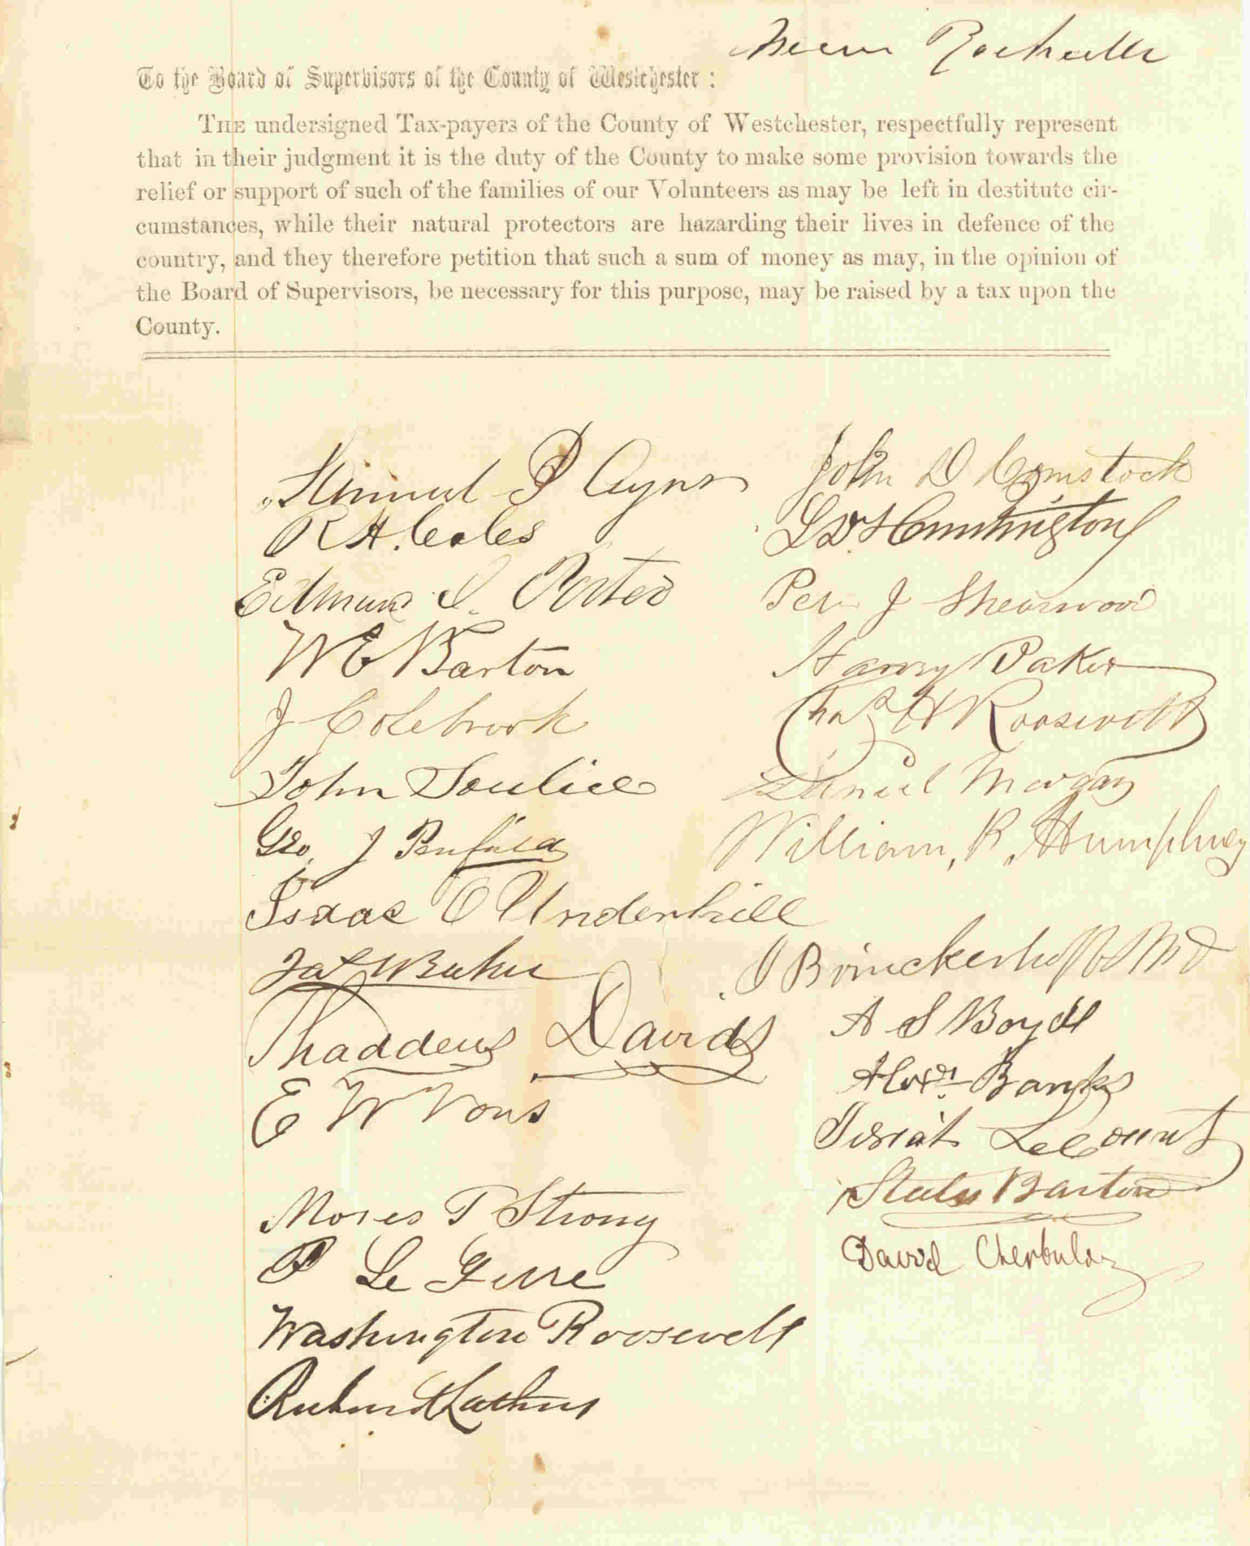 New Rochelle
To the Board of Supervisors of the County of Westchester :
THE undersigned Tax-payers of the County of Westchester, respectfully represent
that in their judgment it is the duty of the County to make some provision towards the
relief or support of such of the families of our Volunteers as may be left in destitute cir-
cumstances, while their natural protectors are hazarding their lives in defence of the
country, and they therefore petition that such a sum of money as may, in the opinion of
the Board of Supervisors, be necessary for this purpose, may be raised by a tax upon the
County.
P
R H. Coles
Edmund Porter
W E Barton
J Colebrook
John Soulice
Geo. J Penfield
Isaac C Underhill
Thaddeus Davids
E W Vous
Moses T Strong
P Le
Washington Roosevelt
John D Comstock
L D Huntington
J Shearwood
Harvey
Chas H Roosevelt
Daniel Morgan
William, R, Humphrey
J Brinckerhoff MD
A S Boyd
Alexr Banks
LeCount
Barton
David Cherbulaz